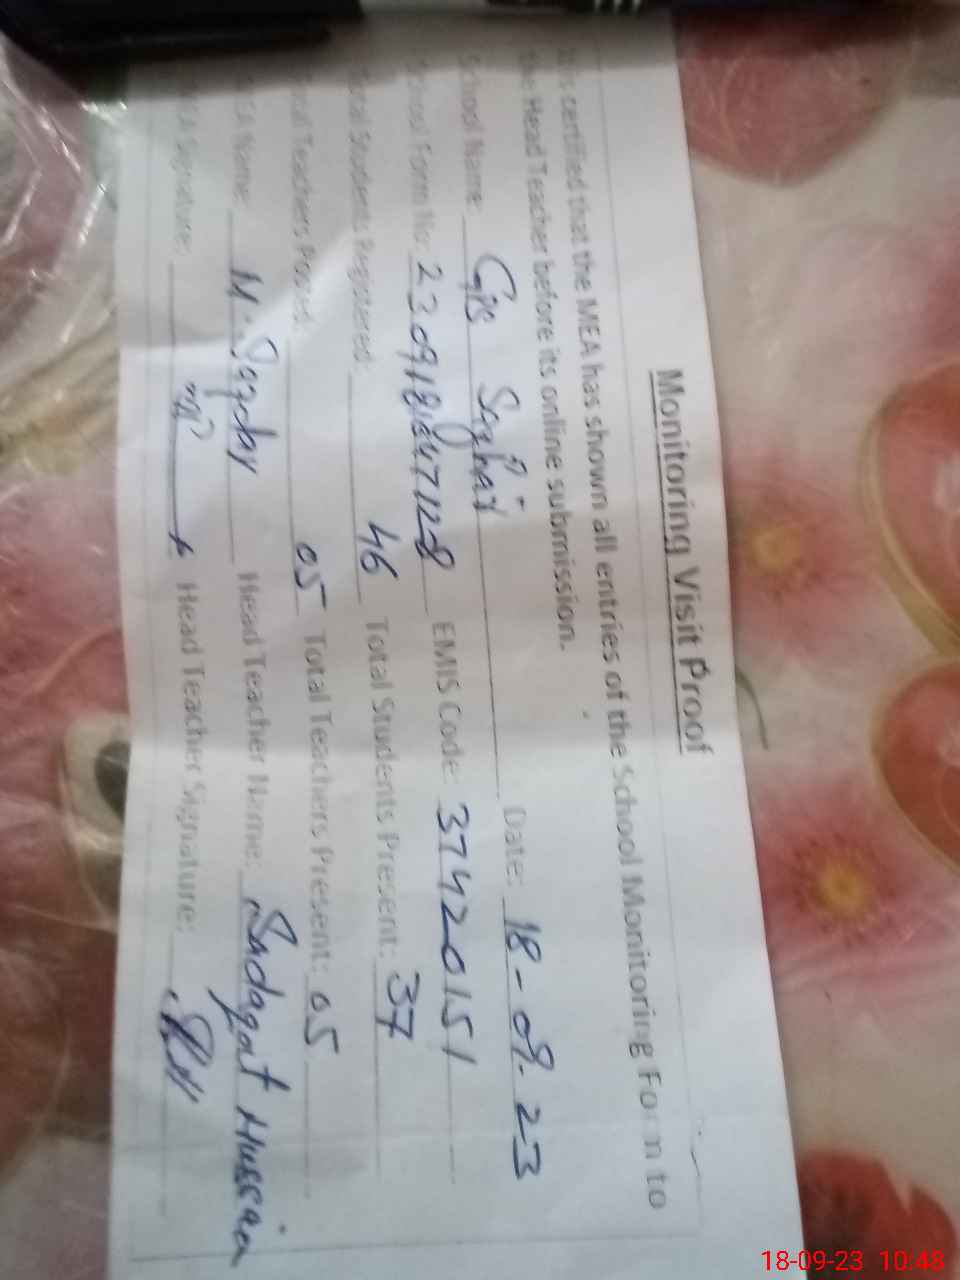 Monitoring Visit Proof
is certified that the MEA has shown all entries of the School Monitoring Form to
the Head Teacher before its online submission.
School Name: GPS Date: 18-09-23
School Form No: EMIS Code: 37420151
Total Students Registered: 46 Total Students Present: 37
Total Teachers Posted: 05 Total Teachers Present: 05
MEA Name: M. Head Teacher Name: Sadaqat Hussain
MEA Signature: Head Teacher Signature:
18-09-23 10:48